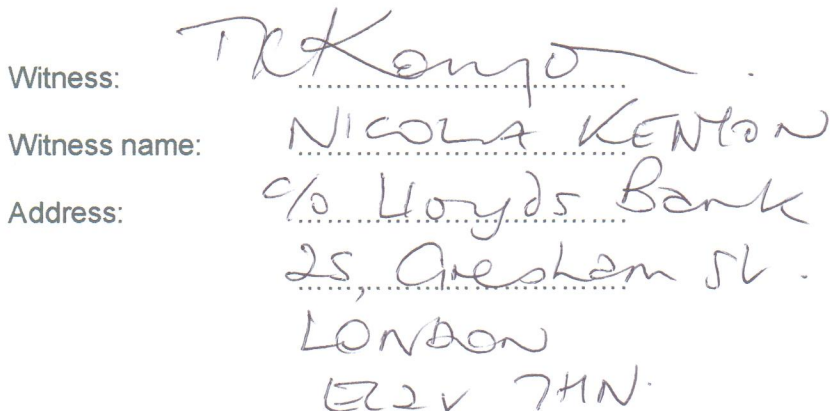 Witness: NKenyon
Witness name: NICOLA KENYON
Address: c/o Lloyds Bank
25, Gresham St.
LONDON
EC2V 7HN.